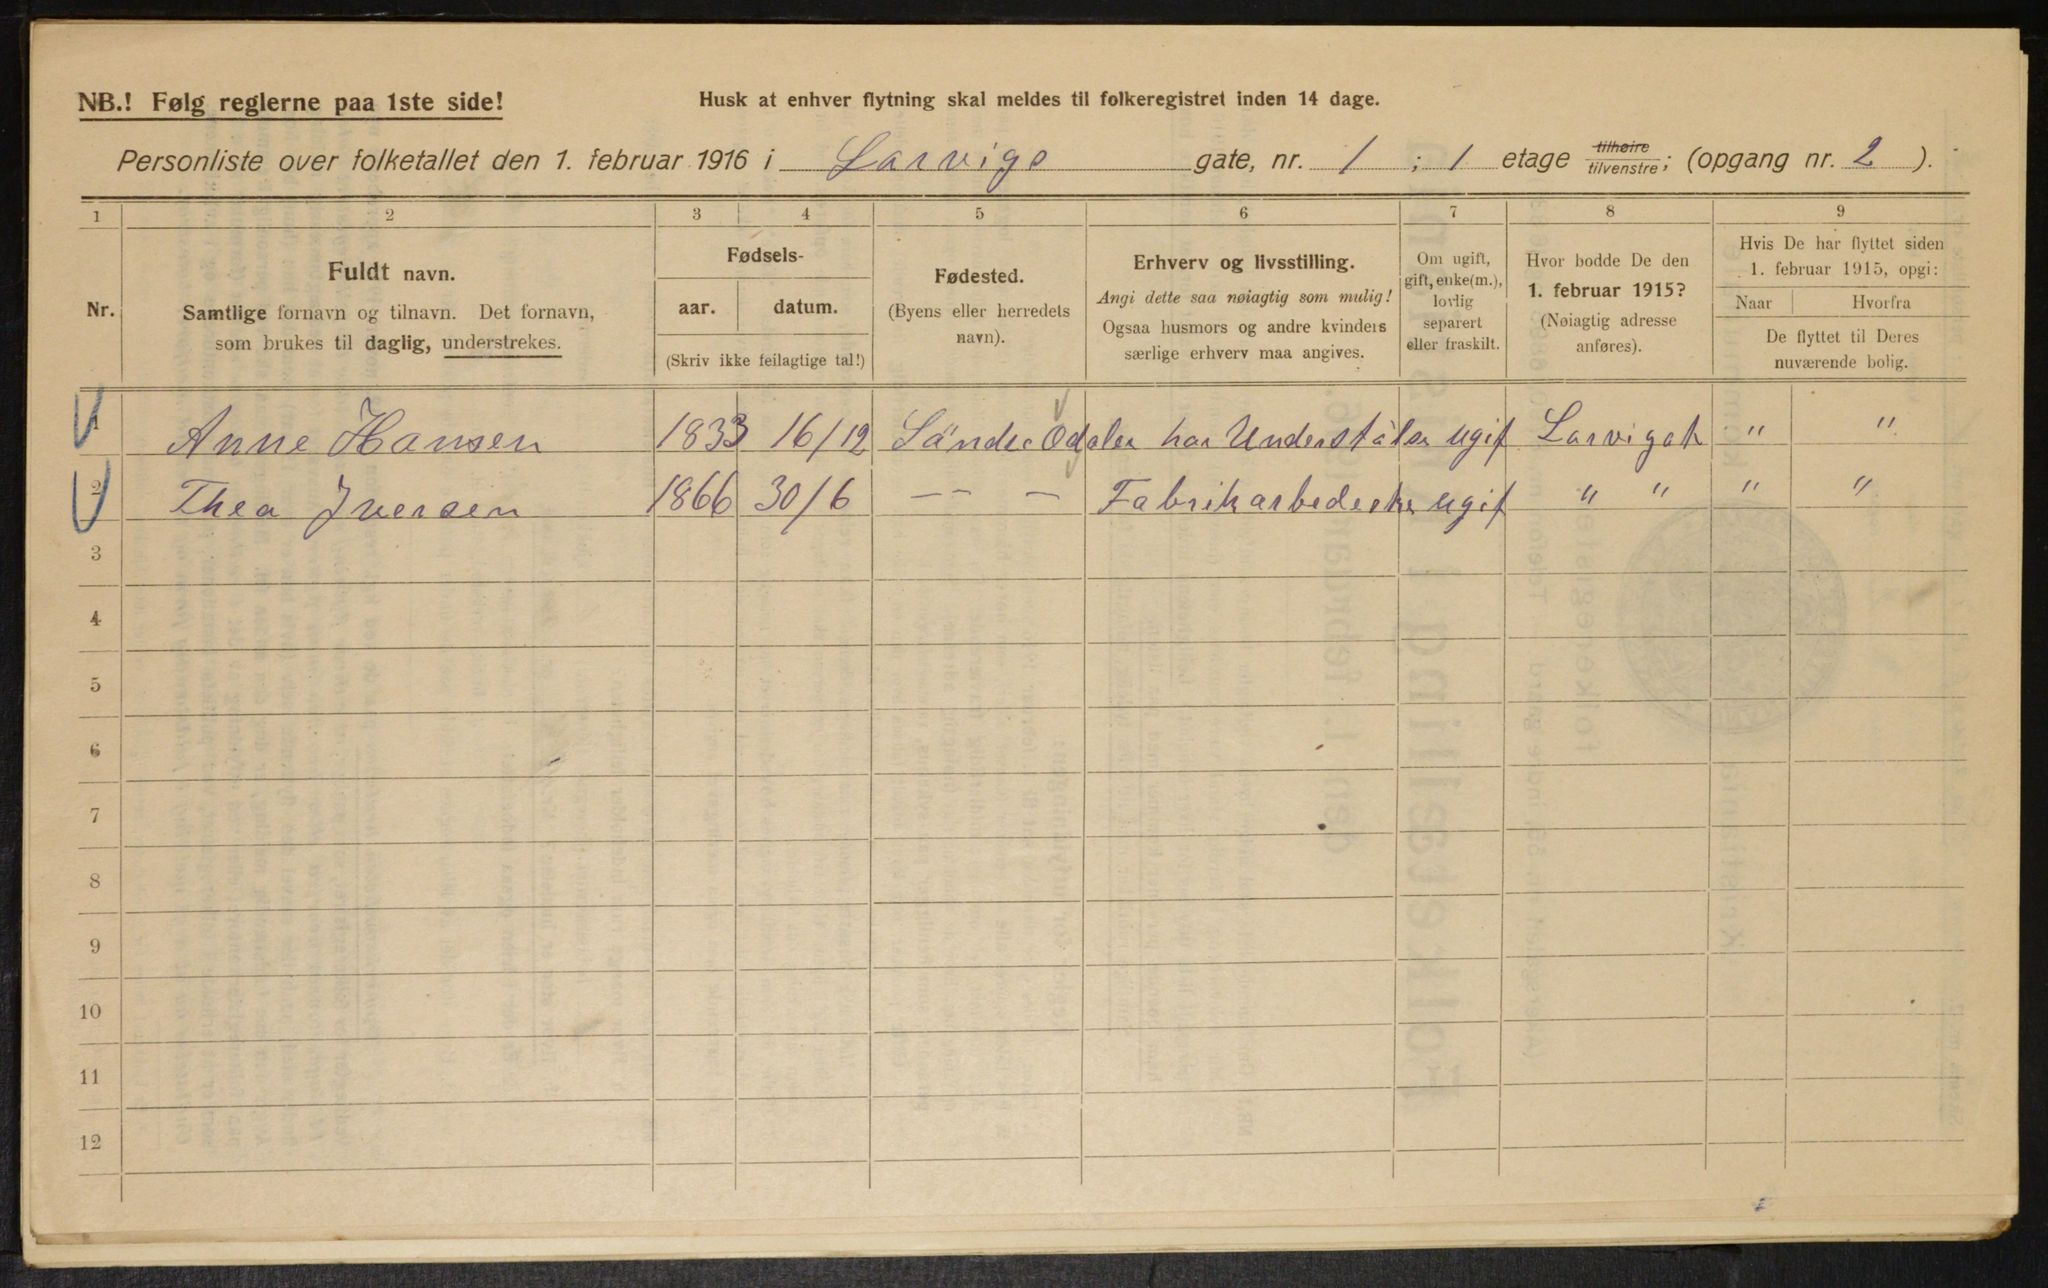 NB.! Følg reglerne paa 1ste side!
Husk at enhver flytning skal meldes til folkeregistret inden 14 dage.
Personliste over folketallet den 1. februar 1916 i Larvigs gate, nr. 1 ; 1 etage tilhøire / tilvenstre; (opgang nr. 2 ).
1 2 3 4 5 6 7 8 9
Nr.
Fuldt navn.
Samtlige fornavn og tilnavn. Det fornavn,
som brukes til daglig, understrekes.
Fødsels-
aar. datum.
(Skriv ikke feilagtige tal!)
Fødested.
(Byens eller herredets
navn).
Erhverv og livsstilling.
Angi dette saa nøiagtig som mulig!
Ogsaa husmors og andre kvinders
særlige erhverv maa angives.
Om ugift,
gift, enke(m.),
lovlig
separert
eller fraskilt.
Hvor bodde De den
1. februar 1915?
(Nøiagtig adresse
anføres).
Hvis De har flyttet siden
1. februar 1915, opgi:
Naar Hvorfra
De flyttet til Deres
nuværende bolig.
1 Anne Hansen 1833 16/12 Søndre Odalen har Understøtse ugift Larvigat " "
2 Thea Iversen 1866 30/6 — — Fabrikarbederske ugift " " " "
3
4
5
6
7
8
9
10
11
12